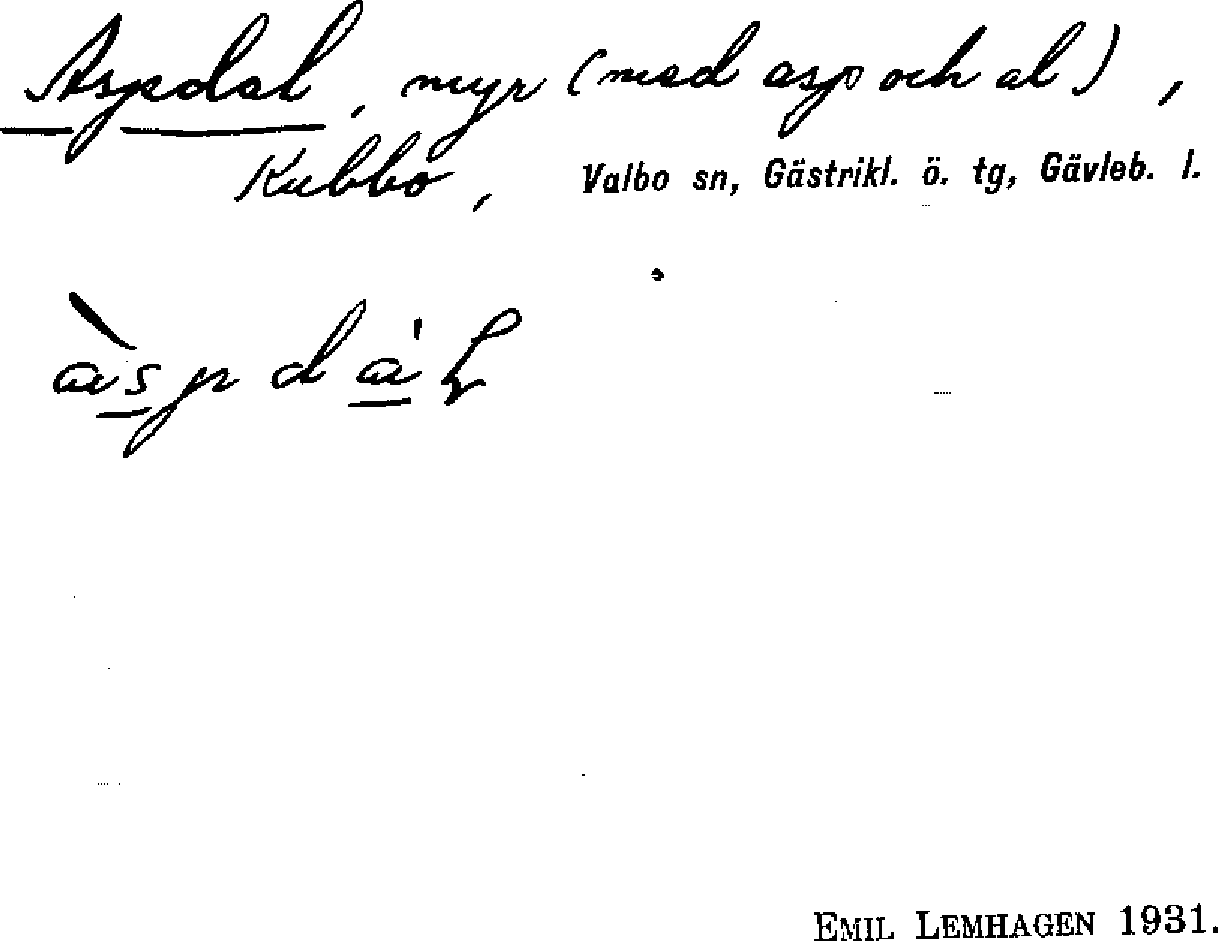 Aspdal, myr (med asp och al),
Kubbo, Valbo sn, Gästrikl. ö. tg, Gävleb. l.
àspdáɫ
EMIL LEMHAGEN 1931.